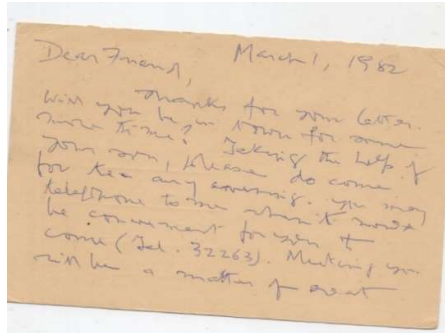 Dear Friend, March 1, 1982
Thanks for your letter.
Will you be in town for some
more time? Taking the help of
your son, please do come
for tea any evening. You may
telephone to me when it would
be convenient for you to
come (Tel. 32263). Meeting you
will be a matter of great